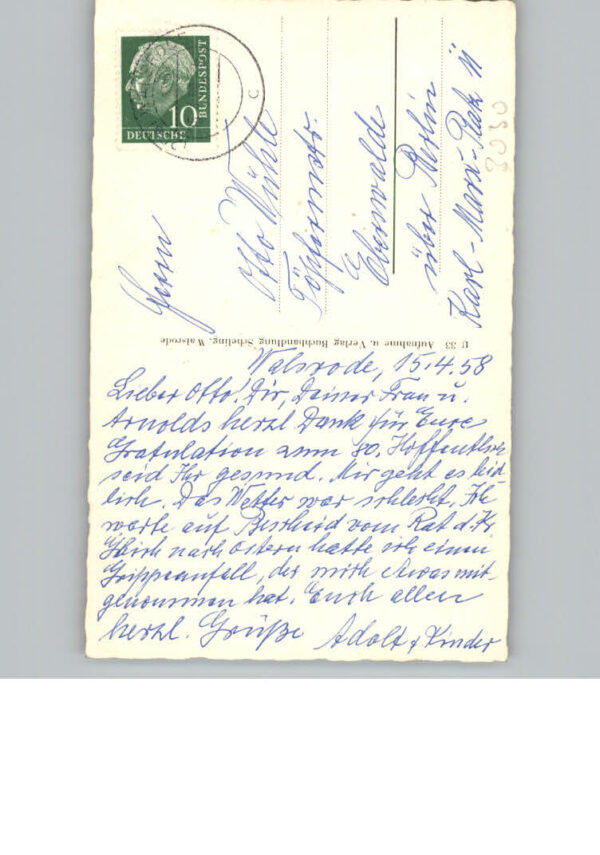 10
BUNDESPOST
DEUTSCHE
C
Herrn
Otto Wühle
Töpfermstr.
Eberswalde
über Berlin
Karl-Marx-Platz 11
3030
U 33 Aufnahme u. Verlag Buchhandlung Scheling, Walsrode
Walsrode, 15.4.58
Lieber Otto! Dir, Deiner Frau u.
Arnolds herzl Dank für Eure
Gratulation zum 80. Hoffentlich
seid Ihr gesund. Mir geht es leid
lich. Das Wetter war schlecht. Ich
warte auf Bescheid vom Rat d. Kr.
Gleich nach Ostern hatte ich einen
Grippeanfall, der mich etwas mit-
genommen hat. Euch allen
herzl. Grüße Adolf u Kinder